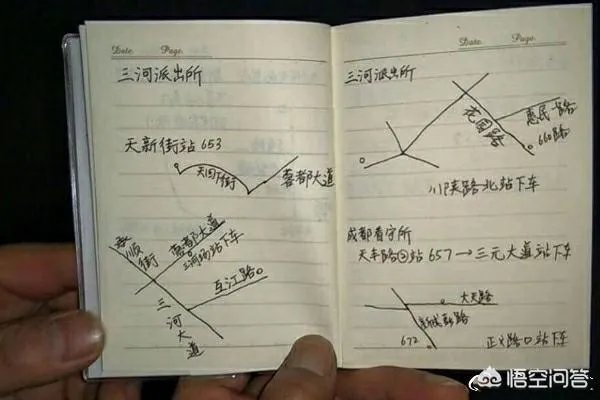 Date. Page.
三河派出所
天新街站 653
天回下街
蓉都大道
泰顺街
蓉都大道
三河场站下车
互江路
三河大道
Date. Page.
三河派出所
花园路
惠民一路
660路
川陕路北站下车
成都看守所
天丰路②站 657→三元大道站下车
大天路
672
正义路口站下车
悟空问答